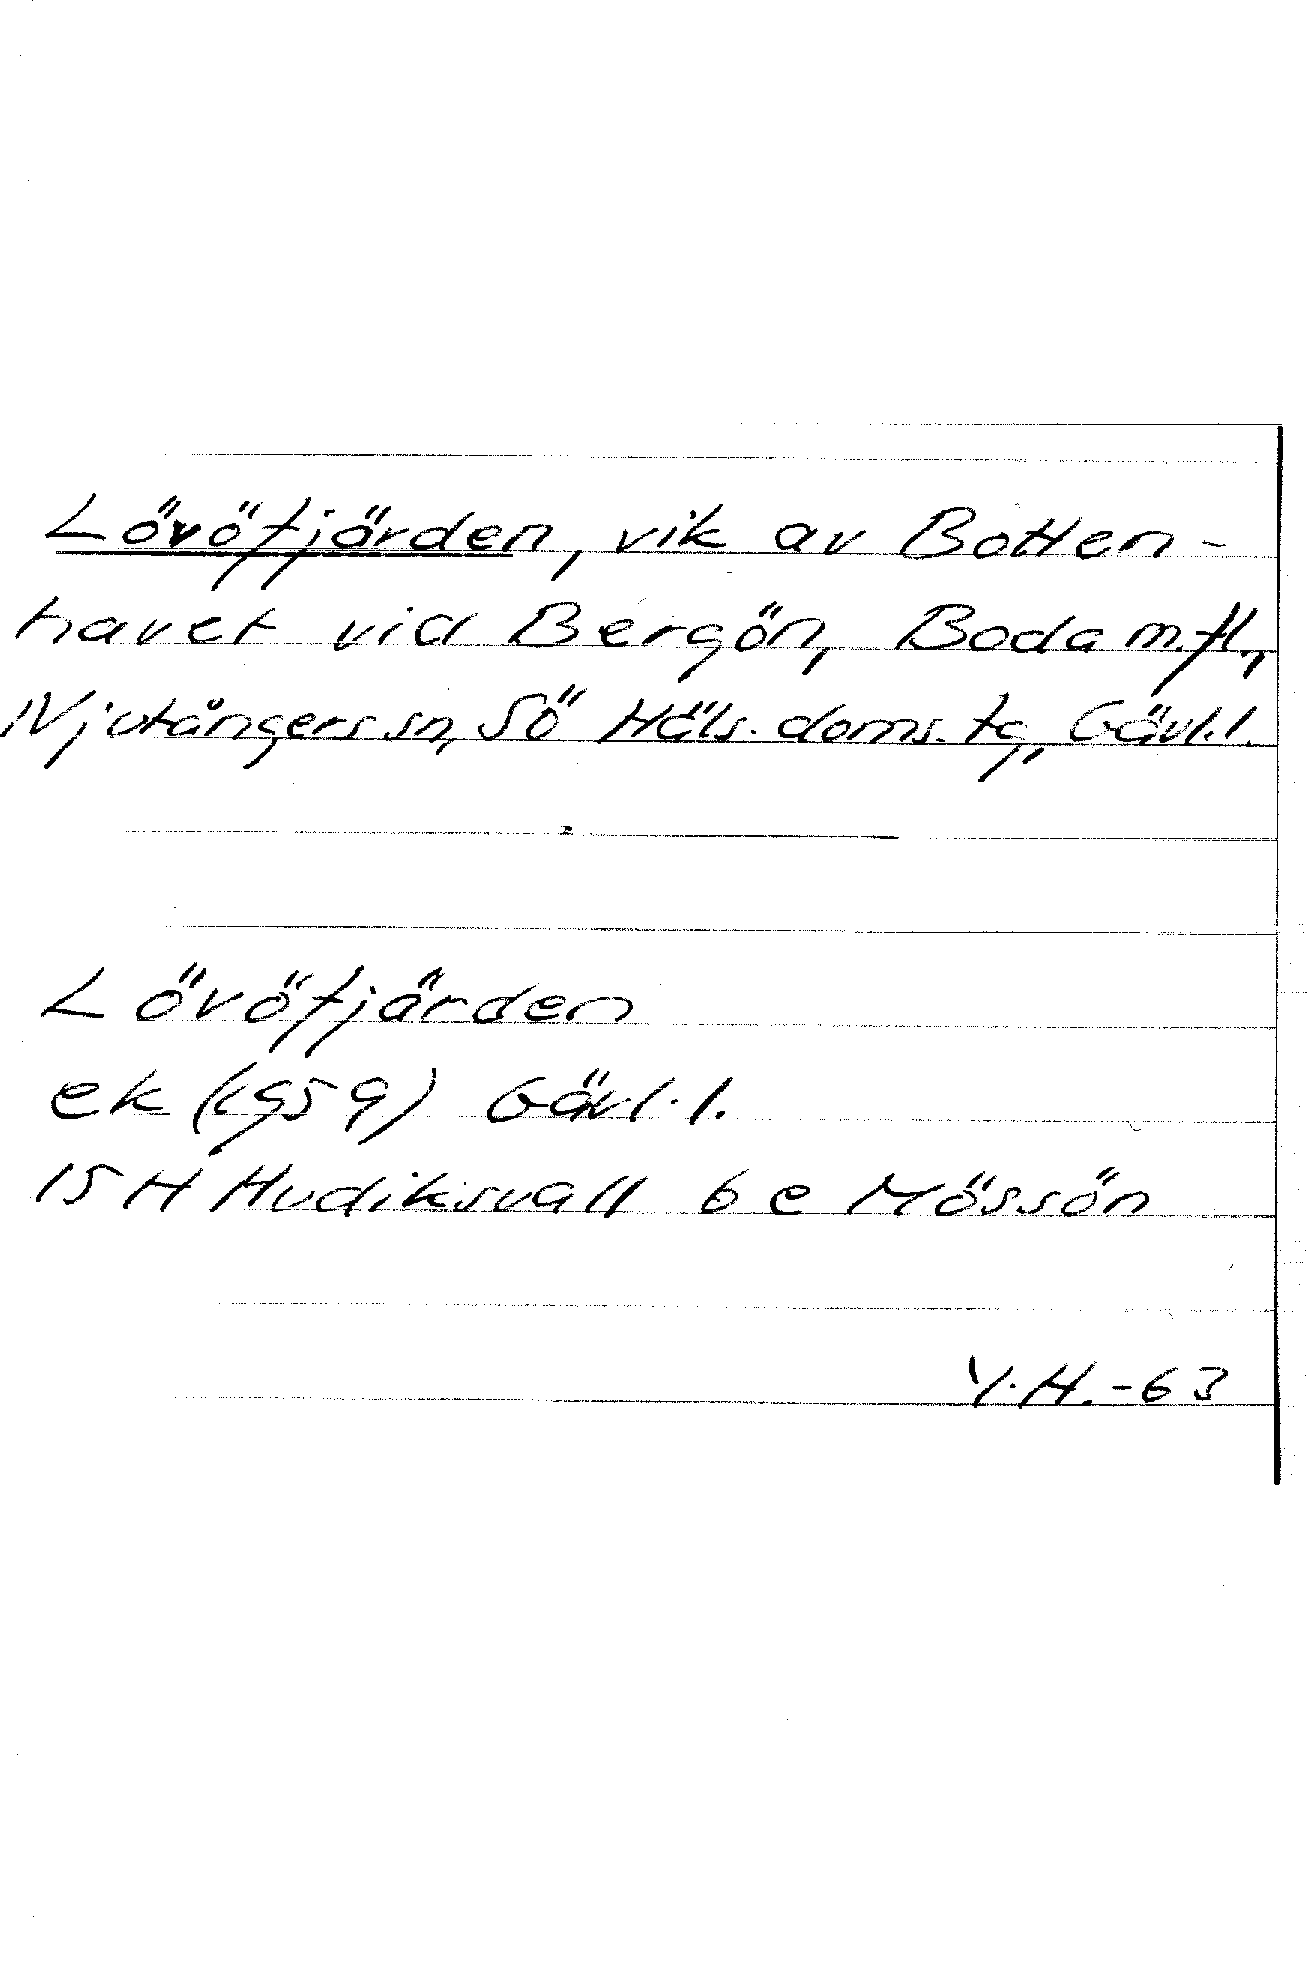 Lövöfjärden, vik av Botten-
havet vid Bergön, Boda m.fl.,
Njutångers sn, Sö Häls. doms. tg, Gävl.l.
Lövöfjärden
ek (1959) Gävl.l.
15 H Hudiksvall 6 e Mössön
Y.H.-63